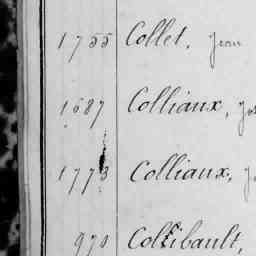 1755 Collet, Jean
1687 Colliaux, Jos
1773 Colliaux, J
970 Collibault,